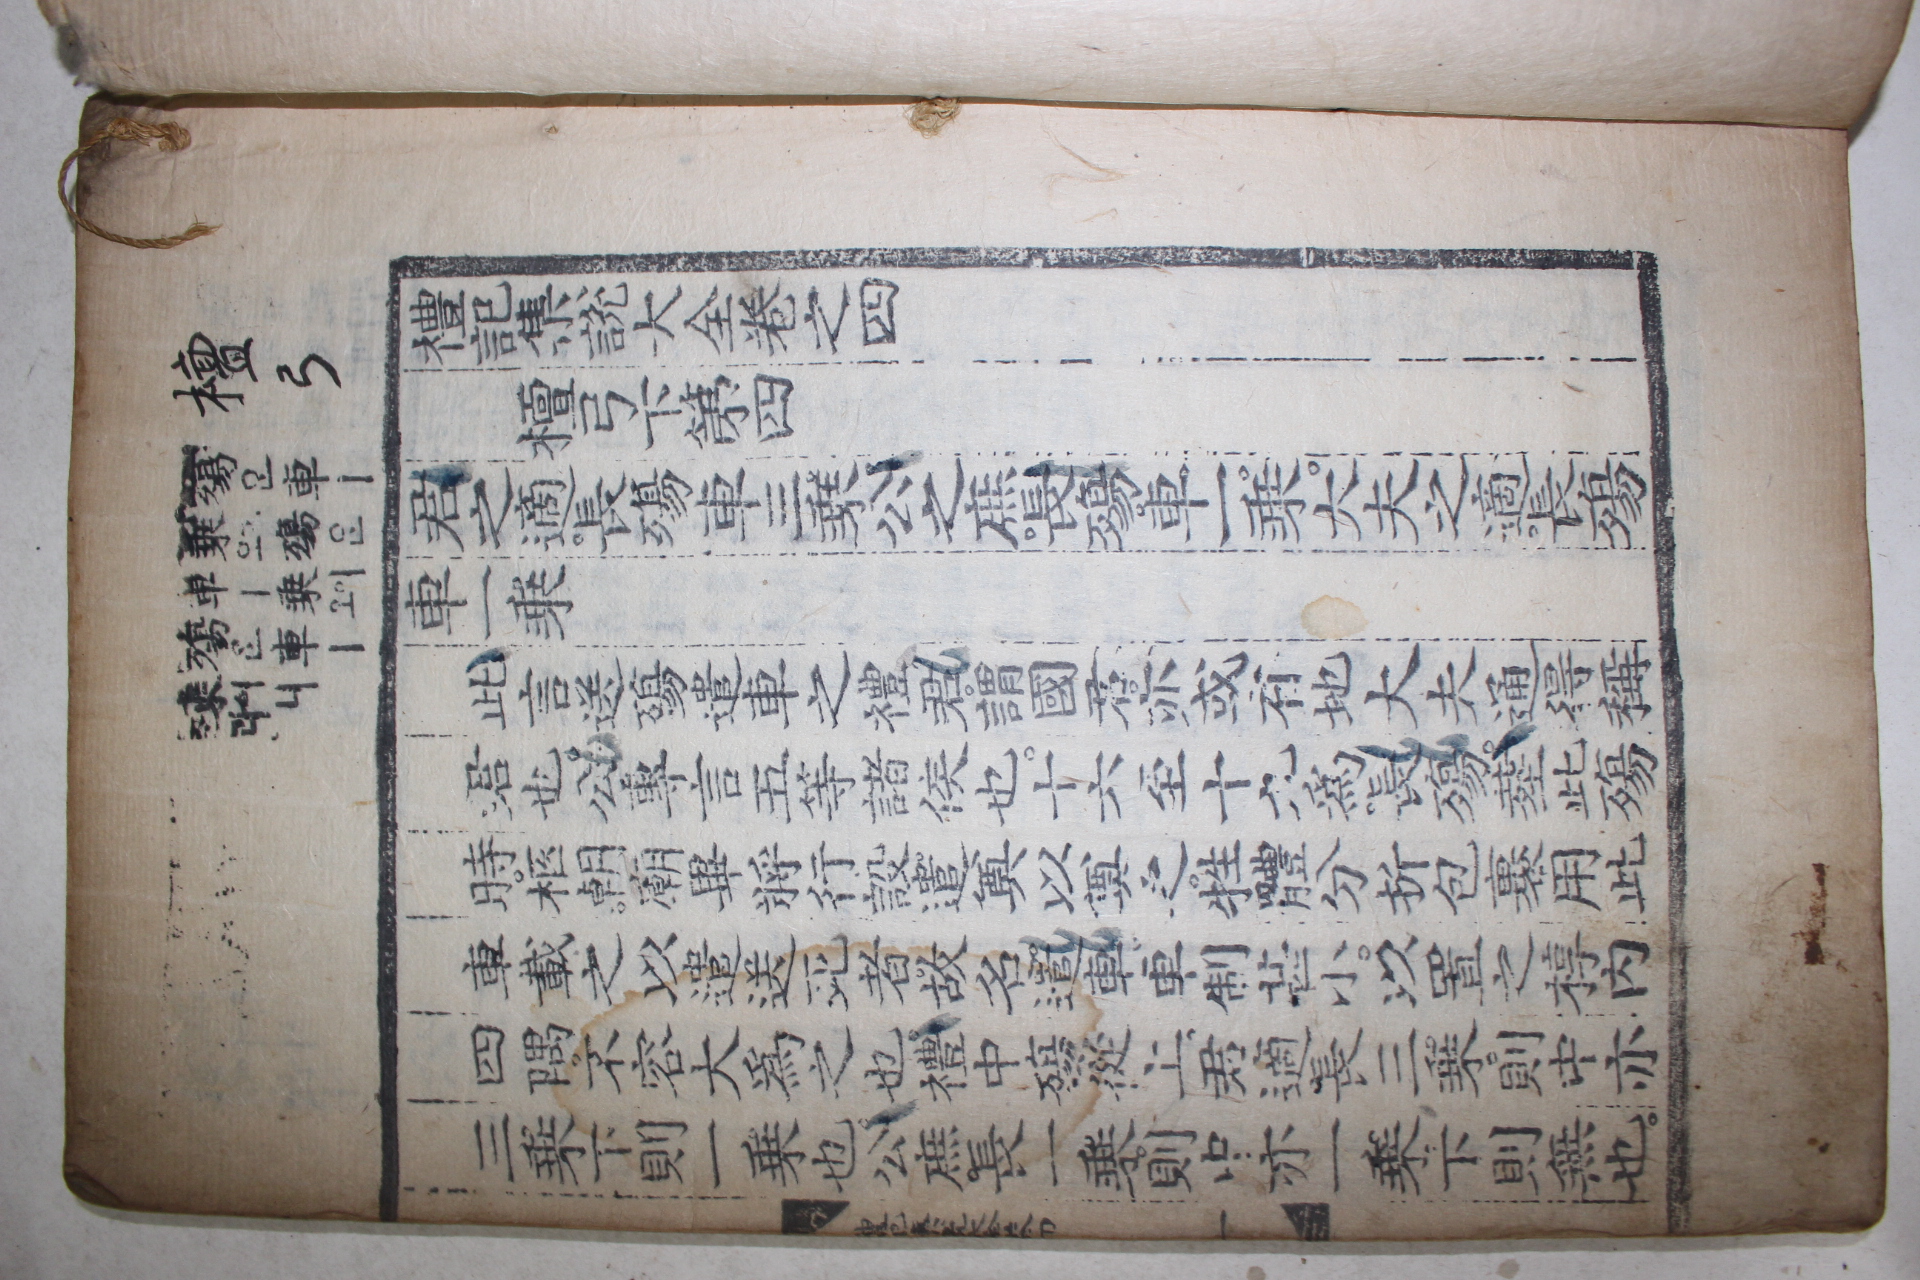 檀弓
禮記集說大全卷之四
檀弓下第四
君之適長殤車三乘公之庶長殤車一乘大夫之適長殤
車一乘
此言送殤遣車之禮君謂國君亦或有地大夫通得稱
君也公專言五等諸侯也十六至十九爲長殤葬此殤
時柩朝廟畢將行設遣奠以奠之牲體分折包裹用此
車載之以遣送死者故名遣車車制甚小以置之槨內
四隅不容大爲之也禮中殤從上君適長三乘則中亦
三乘下則一乘也公庶長一乘則中亦一乘下則無也